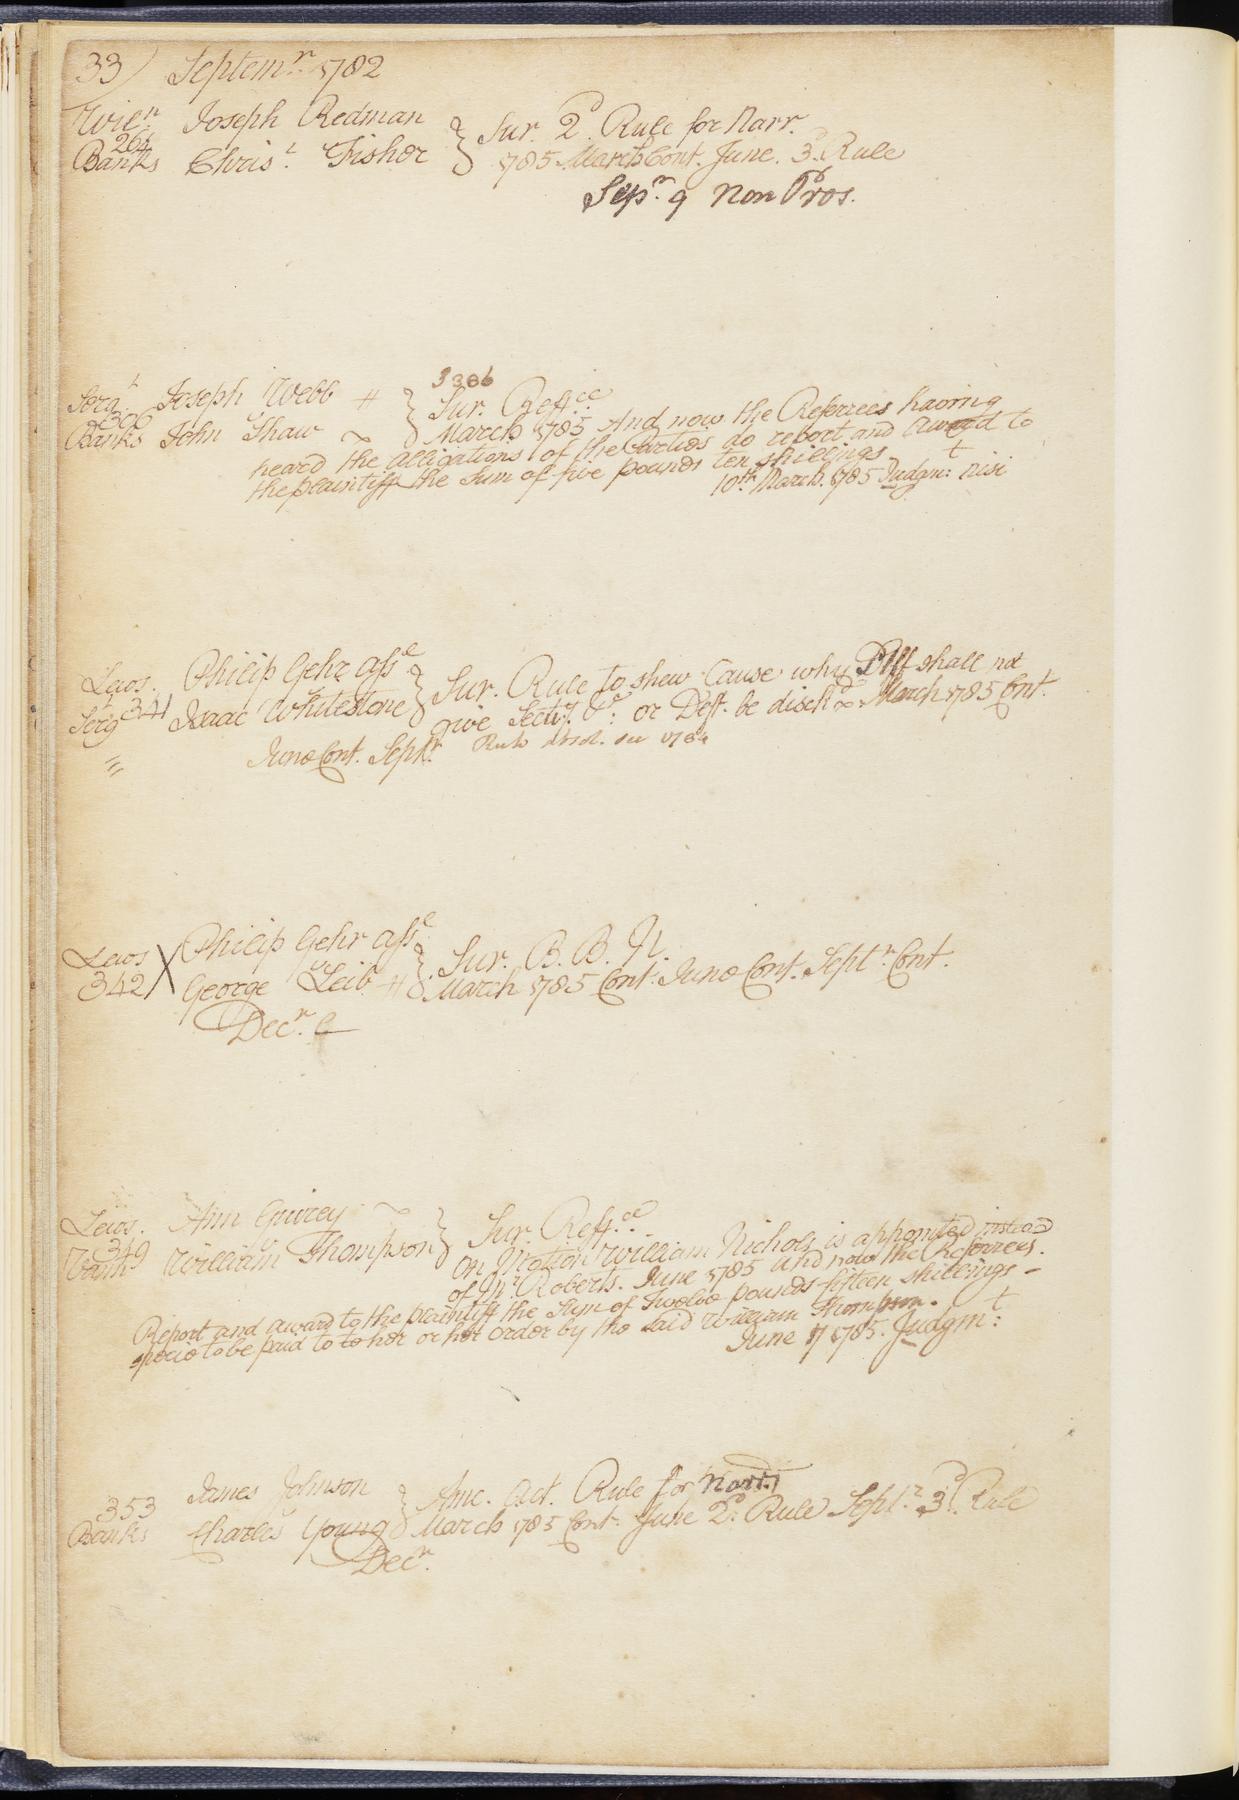 33) Septemr. 1782
Wier. Joseph Redman } Sur. 2d. Rule for Narr.
264
Banks Christ. Fisher 1785 March Cont. June. 3d. Rule
Sepr. 9 Non Pros.
3306
Sergt. Joseph Webb # } Sur. Reffce
306
Banks John Shaw ~ March 1785 And now the Referees having
heard the alligations of the Parties do report and award to
the plaintiff the Sum of five pounds ten shillings
10th. March. 1785 Judgmt: nisi
Lews. Philip Gehr asse } Sur. Rule to shew Cause why Plff shall not
Sergt 341 Isaac Whitestone give Secty. &c: or Deft. be dischd. March 1785 Cont.
" June Cont. Septr. Rule
Lews X Philip Gehr asse } Sur. B. B. N.
342 George Leib # March 1785 Cont. June Cont. Septr. Cont.
Decr. C
Lews. Ann ~ } Sur. Reff.ce
349
William Thompson On Motion William Nichols is appointed instead
of Mr. Roberts. June 1785 and now the Referrees.
Report and award to the plaintiff the Sum of Twelve pounds fifteen shillings -
specie to be paid to to her or her order by the said William Thompson.
June 17 1785. Judgmt:
353 James Johnson } Amc. Act. Rule for Narr.
Banks Charles Young March 1785 Cont. June 2d. Rule Septr. 3d. Rule
Decr.